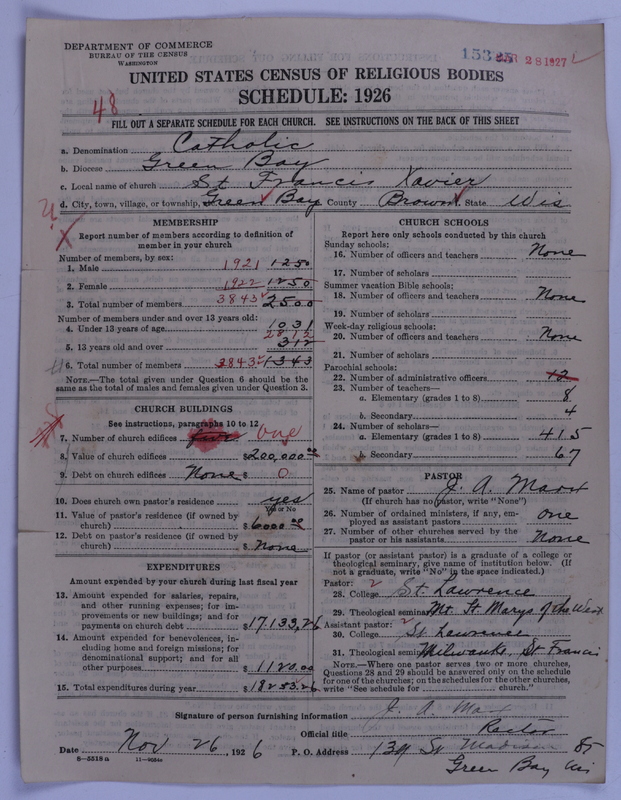 DEPARTMENT OF COMMERCE
BUREAU OF THE CENSUS
WASHINGTON
28 1927
UNITED STATES CENSUS OF RELIGIOUS BODIES
SCHEDULE: 1926
48
FILL OUT A SEPARATE SCHEDULE FOR EACH CHURCH. SEE INSTRUCTIONS ON THE BACK OF THIS SHEET
a. Denomination Catholic
b. Diocese Green Bay
c. Local name of church St Francis Xavier
d. City, town, village, or township, Green Bay County Brown State Wis
MEMBERSHIP
Report number of members according to definition of
member in your church
Number of members, by sex:
1. Male 1921 1250
2. Female 1922 1250
3. Total number of members 3843 2500
Number of members under and over 13 years old:
4. Under 13 years of age 1031
5. 13 years old and over 2812 312
6. Total number of members 3843 1343
NOTE.—The total given under Question 6 should be the
same as the total of males and females given under Question 3.
CHURCH BUILDINGS
See instructions, paragraphs 10 to 12
7. Number of church edifices one
8. Value of church edifices $200,000.00
9. Debt on church edifices None $ 0
10. Does church own pastor's residence yes
Yes or No
11. Value of pastor's residence (if owned by
church) $6000.00
12. Debt on pastor's residence (if owned by
church) $ None
EXPENDITURES
Amount expended by your church during last fiscal year
13. Amount expended for salaries, repairs,
and other running expenses; for im-
provements or new buildings; and for
payments on church debt $17133.26
14. Amount expended for benevolences, in-
cluding home and foreign missions; for
denominational support; and for all
other purposes $1120.00
15. Total expenditures during year $18253.26
CHURCH SCHOOLS
Report here only schools conducted by this church
Sunday schools:
16. Number of officers and teachers None
17. Number of scholars
Summer vacation Bible schools:
18. Number of officers and teachers None
19. Number of scholars
Week-day religious schools:
20. Number of officers and teachers None
21. Number of scholars
Parochial schools:
22. Number of administrative officers 12
23. Number of teachers—
a. Elementary (grades 1 to 8) 8
b. Secondary 4
24. Number of scholars—
a. Elementary (grades 1 to 8) 415
b. Secondary 67
PASTOR
25. Name of pastor J. A. Marx
(If church has no pastor, write "None")
26. Number of ordained ministers, if any, em-
ployed as assistant pastors one
27. Number of other churches served by the
pastor or his assistants None
If pastor (or assistant pastor) is a graduate of a college or
theological seminary, give name of institution below. (If
not a graduate, write "No" in the space indicated.)
Pastor:
28. College St. Lawrence
29. Theological seminary Mt. St. Marys of the West
Assistant pastor:
30. College St Lawrence
31. Theological seminary Milwaukee, St Francis
NOTE.—Where one pastor serves two or more churches,
Questions 28 and 29 should be answered only on the schedule
of one of the churches; on the schedules for the other churches,
write "See schedule for church."
Signature of person furnishing information J. A. Marx
Official title Rector
Date Nov 26, 1926 P. O. Address 139 So Madison St
Green Bay Wis
8—5518a 11—9034a